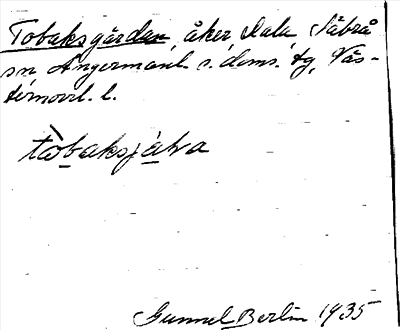 Tobaksgården, åker, Dala Säbrå
sn Ångermanl. s. doms. tg, Väs-
ternorrl. l.
tòbaksjáɬa
Gunnel Berlin 1935